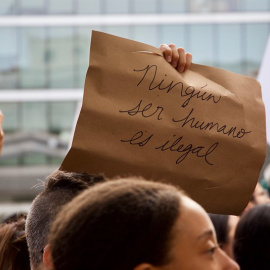 Ningún
ser humano
es ilegal